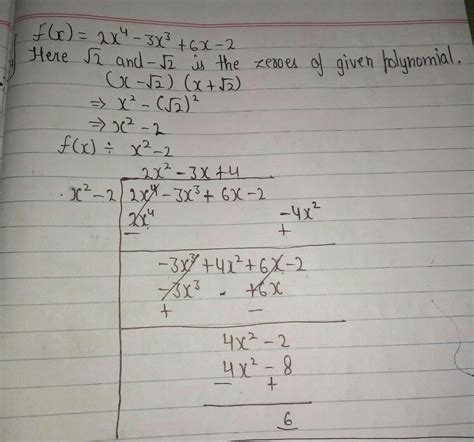 f(x) = 2x⁴ - 3x³ + 6x - 2
Here √2 and -√2 is the zeroes of given polynomial.
(x - √2) (x + √2)
⇒ x² - (√2)²
⇒ x² - 2
f(x) ÷ x² - 2
2x² - 3x + 4
x² - 2 | 2x⁴ - 3x³ + 6x - 2
2x⁴ - 4x²
- +
-3x³ + 4x² + 6x - 2
-3x³ + 6x
+ -
4x² - 2
4x² - 8
- +
6